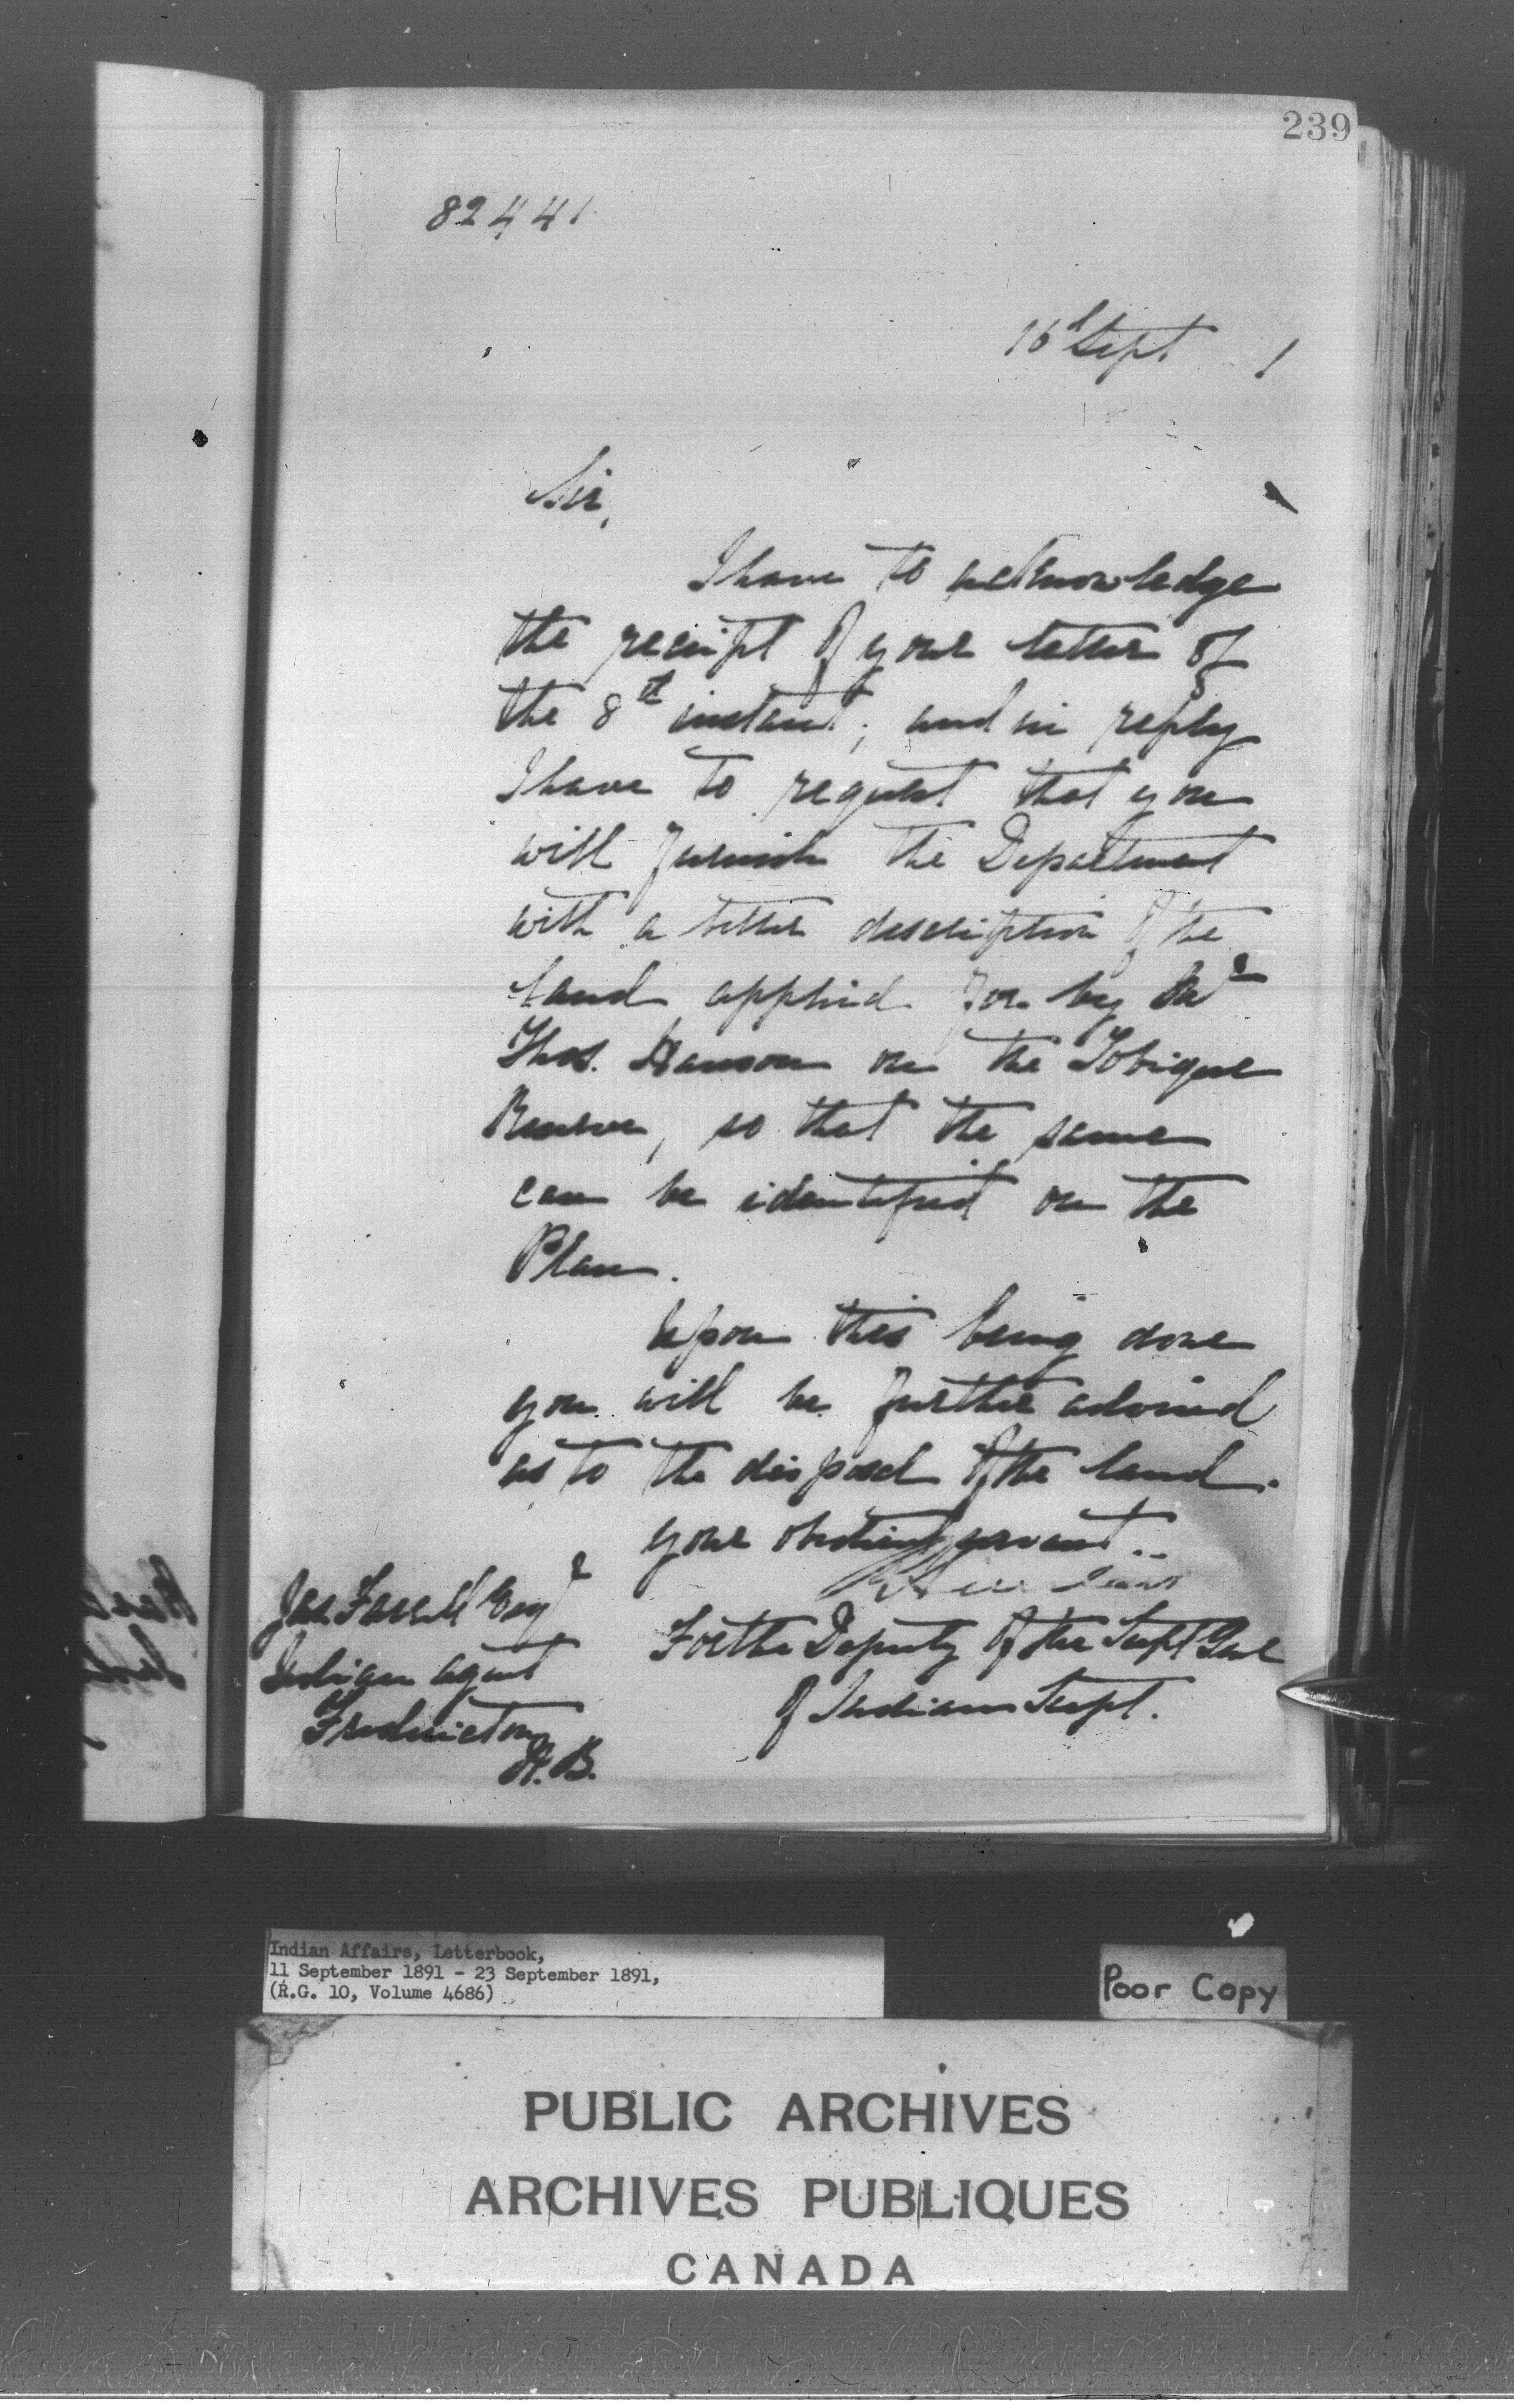 239
82441
16th Sept 1
Sir,
I have to acknowledge
the receipt of your letter of
the 8th instant; and in reply
I have to request that you
will furnish the Department
with a better description of the
land applied for by Mr
Thos. Hanson on the Tobique
Reserve, so that the same
can be identified on the
Plan.
Upon this being done
you will be further advised
as to the disposal of the land.
your obedient servant
For the Deputy of the Supt Genl
of Indian Supt.
Jas Farrell Esqr
Indian agent
Fredericton
N.B.
Indian Affairs, Letterbook,
11 September 1891 - 23 September 1891,
(R.G. 10, Volume 4686)
Poor Copy
PUBLIC ARCHIVES
ARCHIVES PUBLIQUES
CANADA